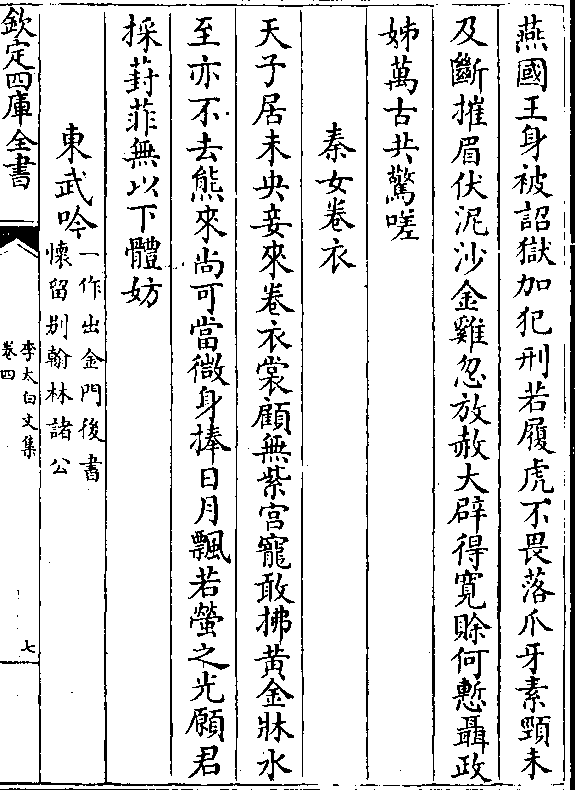 燕國王身被詔獄加犯刑若履虎不畏落爪牙素頸未
及斷摧眉伏泥沙金雞忽放赦大辟得寬賖何慙聶政
姊萬古共驚嗟
秦女卷衣
天子居未央妾來卷衣裳顧無紫宫寵敢拂黄金牀水
至亦不去熊來尚可當微身捧日月飄若螢之光願君
採葑菲無以下體妨
東武吟一作出金門後書
懐留别翰林諸公
欽定四庫全書
李太白文集
卷四
七